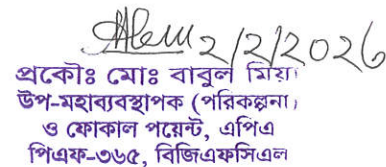 2/2/2026
প্রকৌঃ মোঃ বাবুল মিয়া
উপ-মহাব্যবস্থাপক (পরিকল্পনা)
ও ফোকাল পয়েন্ট, এপিএ
পিএফ-৩৬৫, বিজিএফসিএল